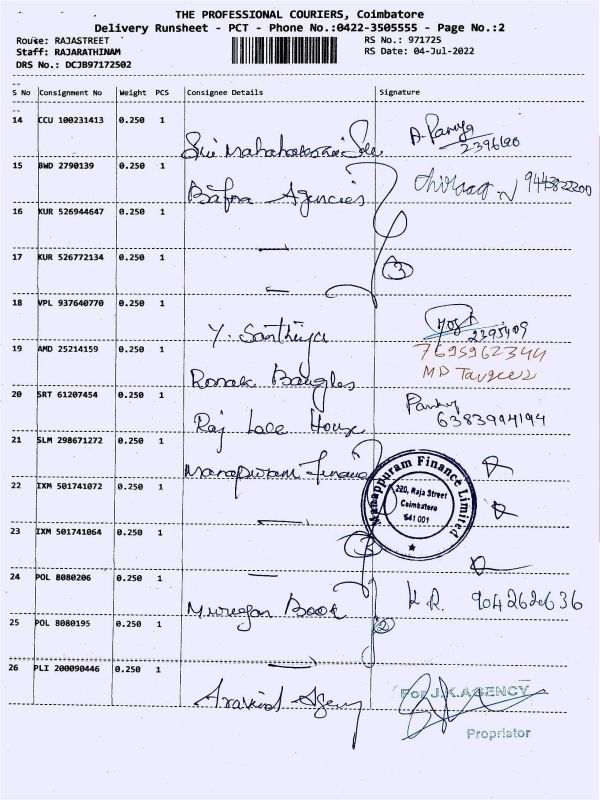 THE PROFESSIONAL COURIERS, Coimbatore
Delivery Runsheet - PCT - Phone No.:0422-3505555 - Page No.:2
Route: RAJASTREET RS No.: 971725
Staff: RAJARATHINAM RS Date: 04-Jul-2022
DRS No.: DCJB97172502
S No Consignment No Weight PCS Consignee Details Signature
14 CCU 100231413 0.250 1
2396190
15 BWD 2790139 0.250 1
Bafna Agencies
16 KUR 526944647 0.250 1
17 KUR 526772134 0.250 1
3
18 VPL 937640770 0.250 1
Y. Santhiya 2395409
19 AMD 25214159 0.250 1 7695962344
Ronak Bangles MD Tavrez
20 SRT 61207454 0.250 1
Raj Lace House 6383994194
21 SLM 298671272 0.250 1
Manappuram Finance
Manappuram Finance Limited
220, Raja Street
Coimbatore
641 001
22 IXM 501741072 0.250 1
23 IXM 501741064 0.250 1
3
24 POL 8080206 0.250 1
Murugan Book K.R. 9042626636
25 POL 8080195 0.250 1
2
26 PLI 200090446 0.250 1
Aravind Agency For J.K.AGENCY
Proprietor